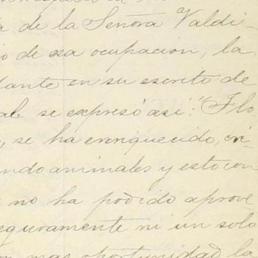 a de la Señora Valdi
io de sa ocupacion, la
dante en su escrito de
al se expresó asi: "Flo
, se ha enriquecido, cri
ndo animales y esto con
no ha podido aprove
eguramente ni un solo
mas oportunidad la